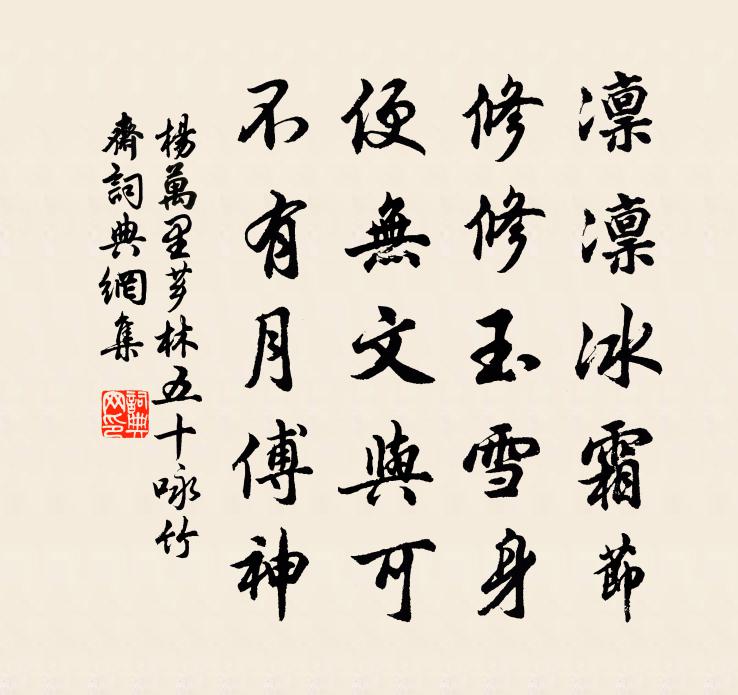 凜凜冰霜節
修修玉雪身
便無文與可
不有月傅神
楊萬里芗林五十咏竹
齋詞典網集
詞典
网印